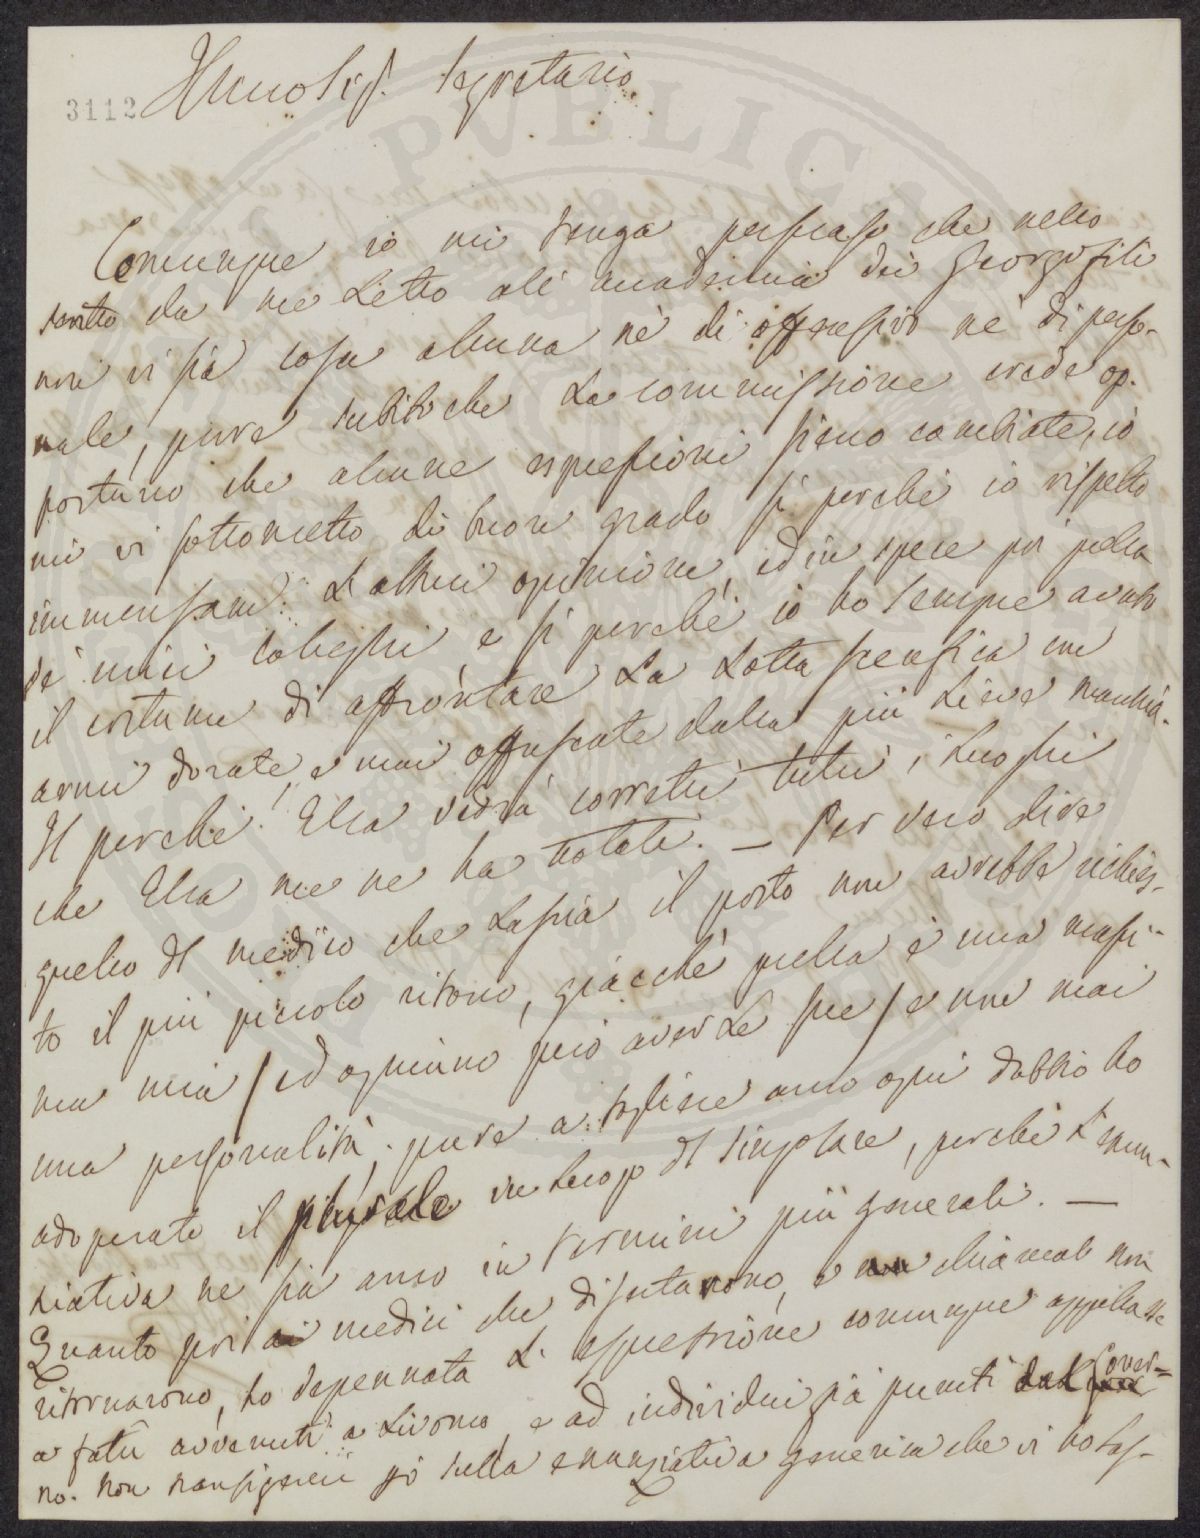 3112
Illmo Sig. Segretario
Comunque io mi tenga persuaso che nello
scritto da me Letto all' Accademia dei Georgofili
non vi sia cosa alcuna nè di offensivo nè di perso-
nale, pure subito che La Commissione crede op-
portuno che alcune espressioni sieno cambiate, io
mi vi sottometto di buon grado sì perchè io rispetto
immensam: L'altrui opinione, ed in specie poi quella
de' miei Colleghi, e sì perchè io ho sempre avuto
il costume di affrontare La Lotta scientifica con
armi dorate, e mai offuscate dalla più Lieve macchia.
Il perchè Ella vedrà corretti tutti i Luoghi
che Ella me ne ha notati. — Per vero dire
quello del medico che Lascia il posto non avrebbe richies-
to il più piccolo ritocco, giacchè quella è una massi-
ma mia / ed ognuno può aver Le sue / e non mai
una personalità; pure a togliere anco ogni dubbio ho
adoperato il plurale in Luogo del singolare, perchè L'enun-
ziativa ne sia anco in termini più generali. —
Quanto poi ai medici che disertarono, e chiamati non
ritornarono, ho depennata L'espressione comunque appellasse
a fatti avvenuti a Livorno, e ad individui già puniti dal Gover=
no. Non transigerei sulla enunziativa generica che vi ho Las-